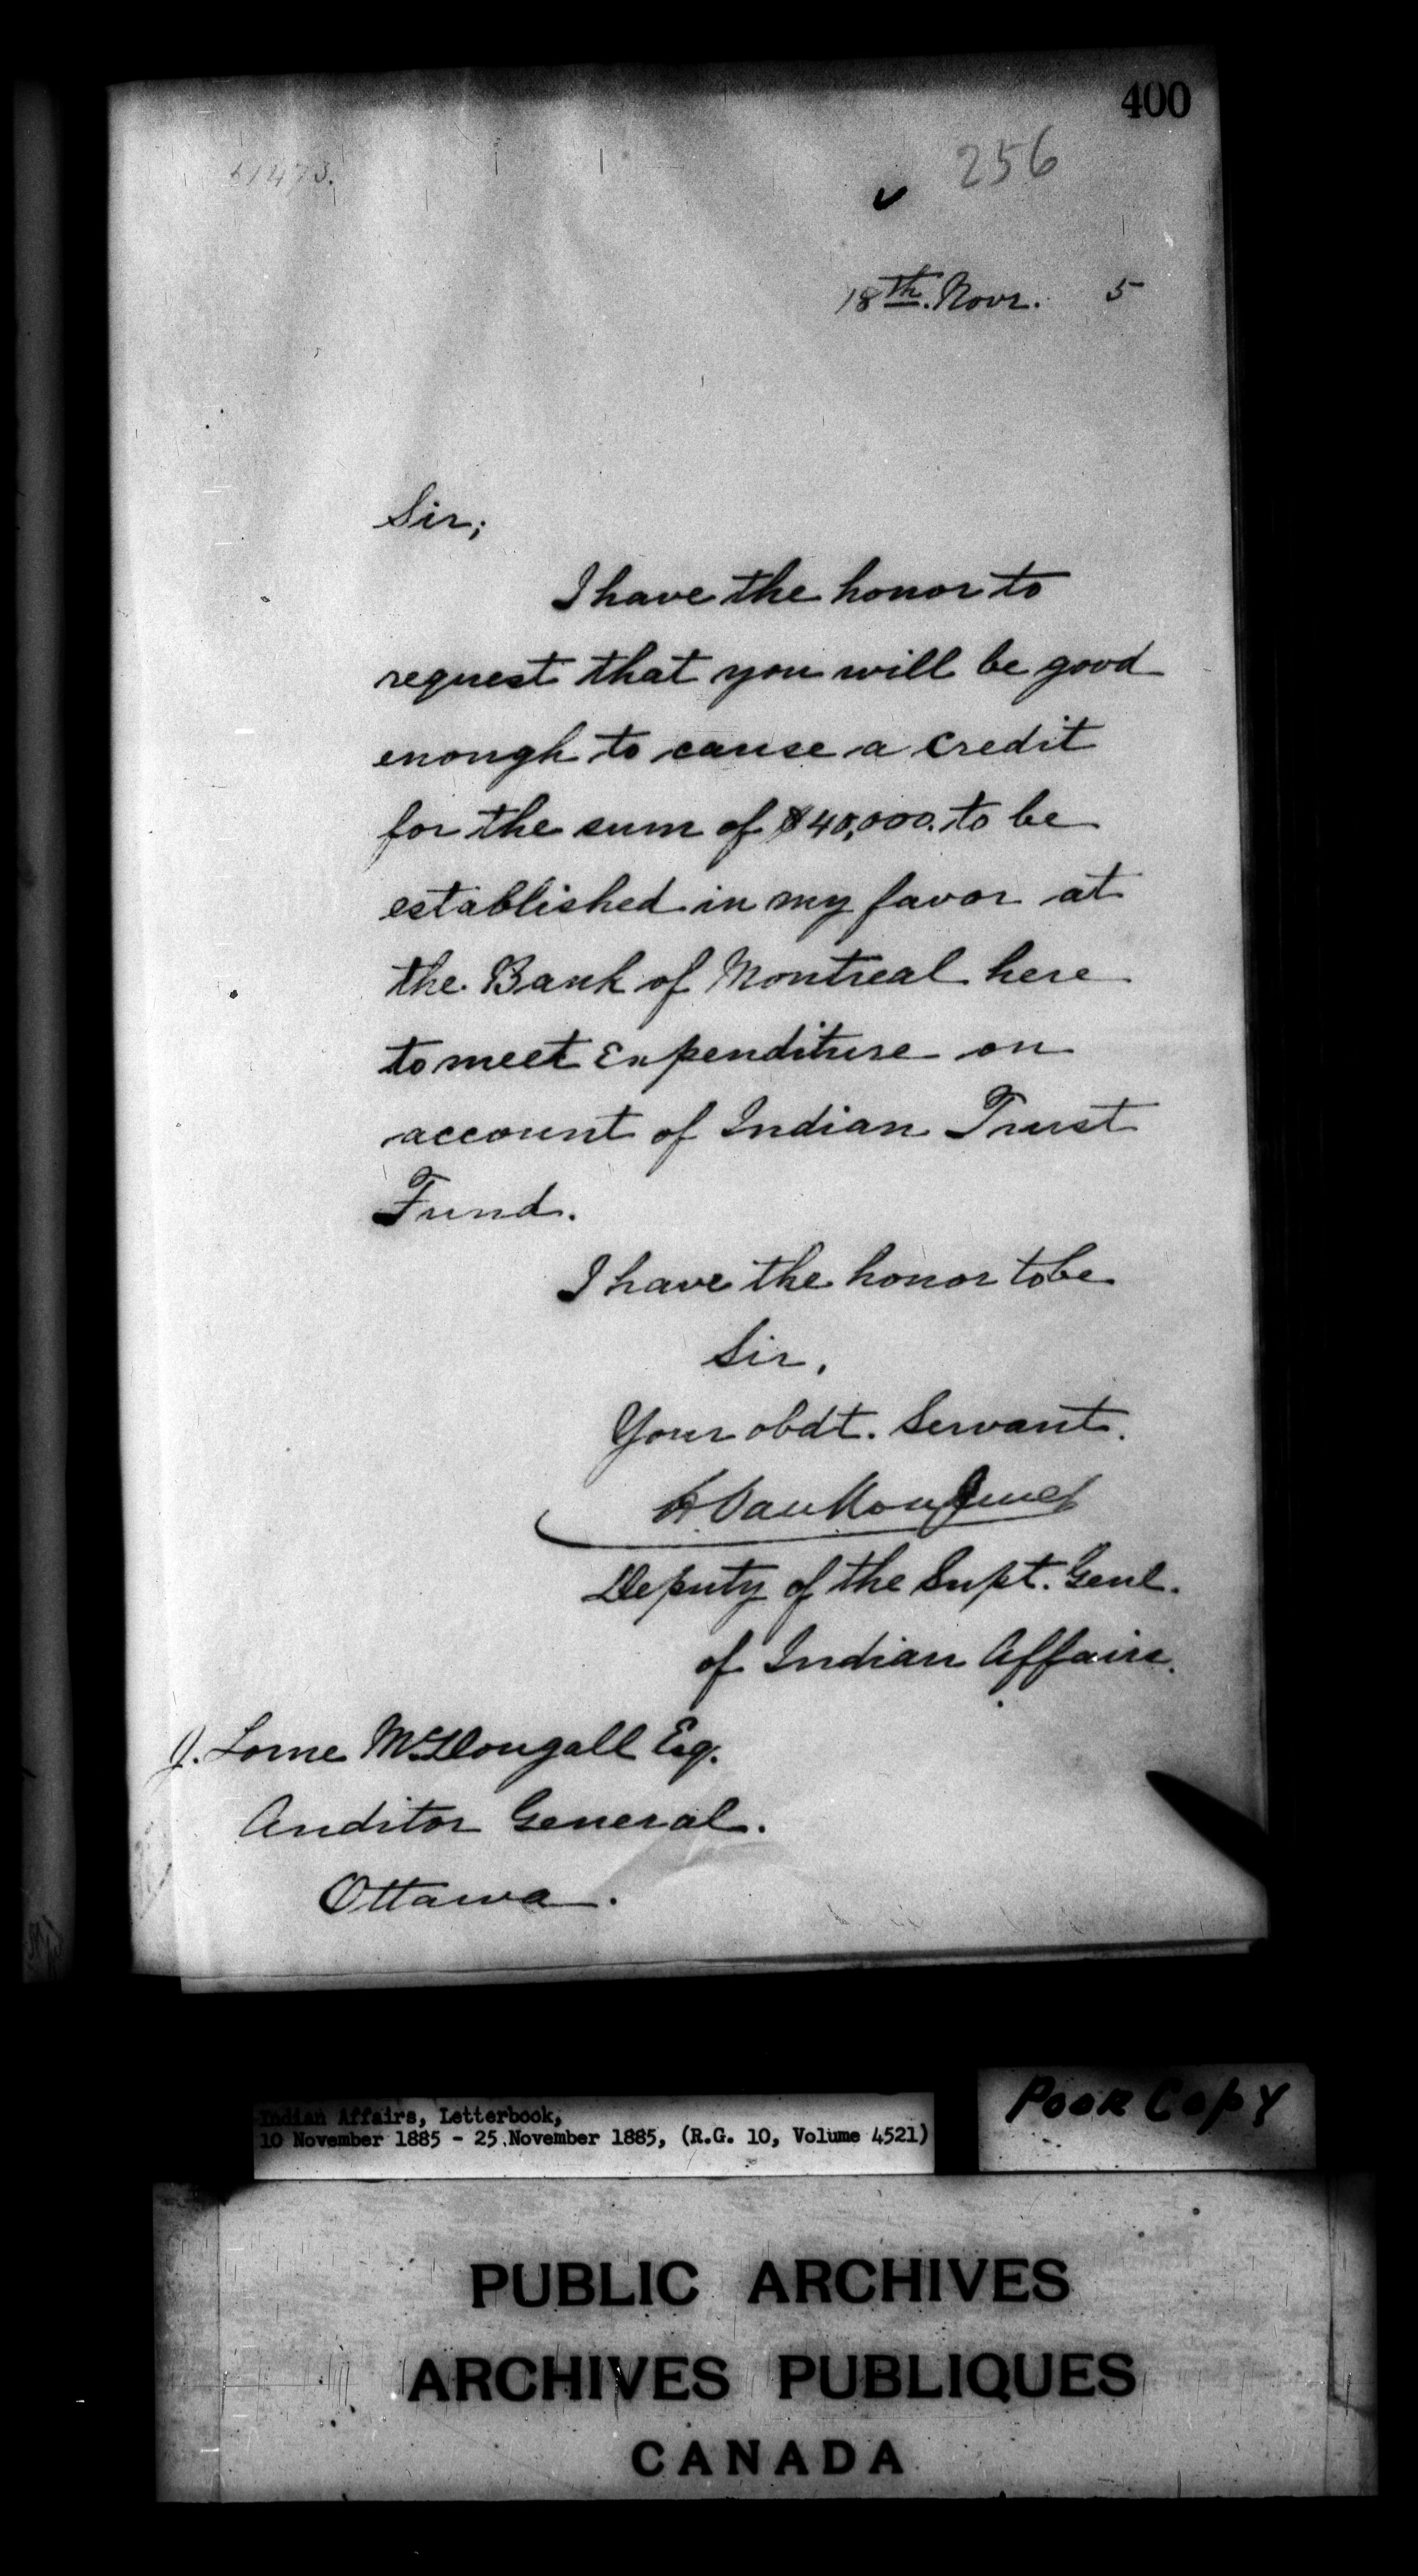 400
256
18th. Novr. 5
Sir;
I have the honor to
request that you will be good
enough to cause a credit
for the sum of $40,000. to be
established in my favor at
the Bank of Montreal here
to meet Expenditure on
account of Indian Trust
Fund.
I have the honor to be
Sir,
Your obdt. Servant.
L. VanKoughnet
Deputy of the Supt. Genl.
of Indian Affairs.
J. Lorne McDougall Esq.
Auditor General.
Ottawa.
Indian Affairs, Letterbook,
10 November 1885 - 25 November 1885, (R.G. 10, Volume 4521)
Poor Copy
PUBLIC ARCHIVES
ARCHIVES PUBLIQUES
CANADA